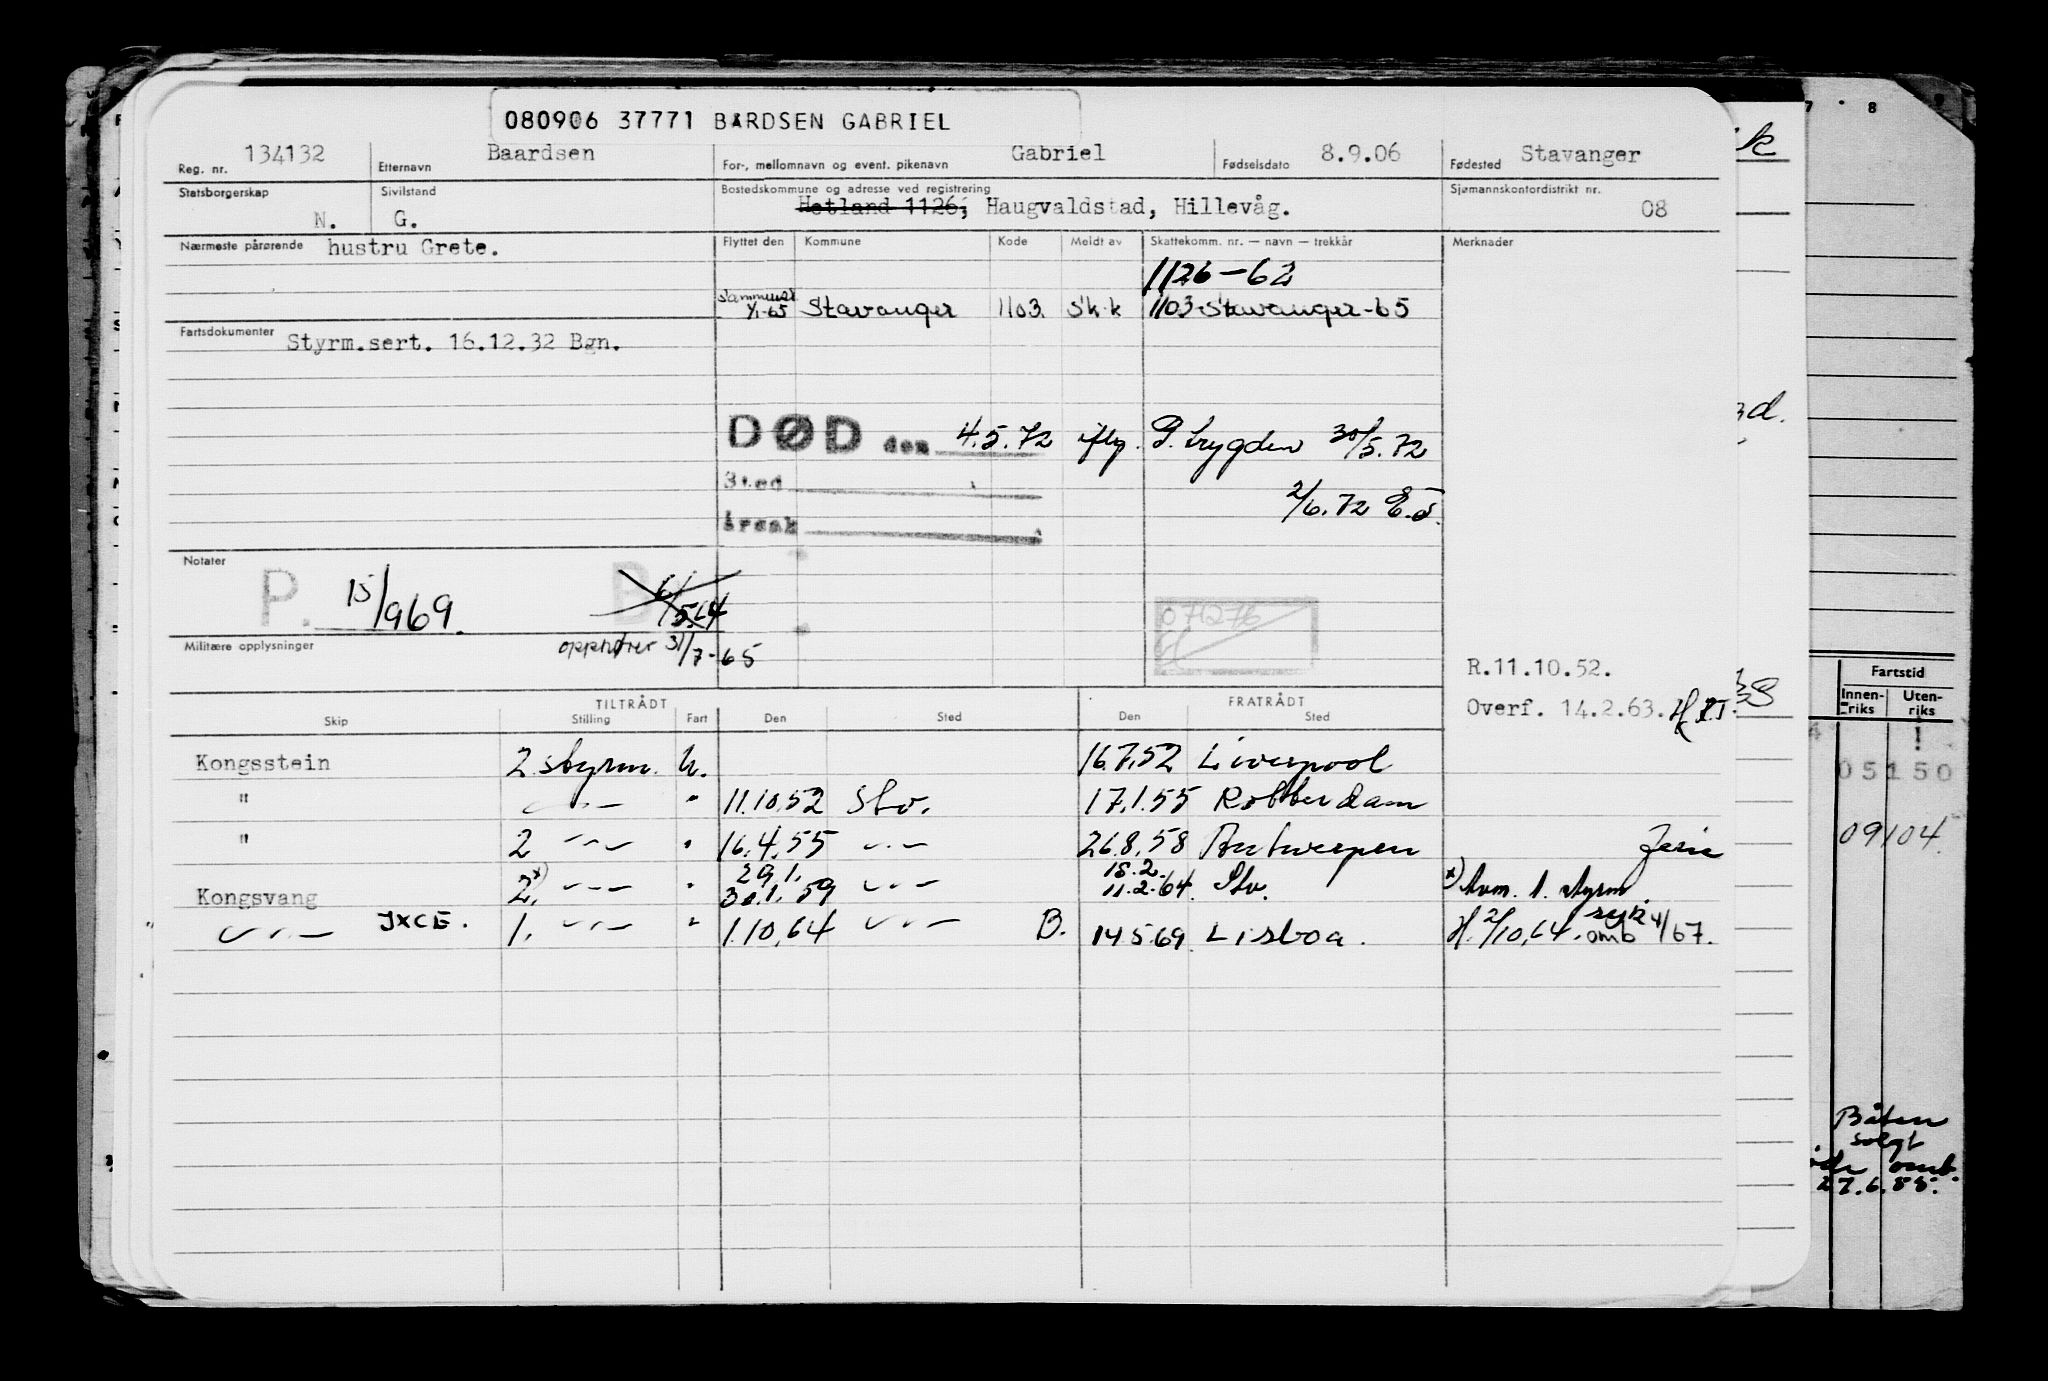 080906 37771 BARDSEN GABRIEL
Reg. nr. 134132 Etternavn Baardsen For-, mellomnavn og event. pikenavn Gabriel Fødselsdato 8.9.06 Fødested Stavanger
Statsborgerskap N. Sivilstand G. Bostedskommune og adresse ved registrering Hetland 1126, Haugvaldstad, Hillevåg. Sjømannskontordistrikt nr. 08
Nærmeste pårørende hustru Grete. Flyttet den Kommune Kode Meldt av Skattekomm. nr. — navn — trekkår Merknader
1126-62
1/1-65 Stavanger 1103. Sk.k 1103 Stavanger-65
Fartsdokumenter Styrm.sert. 16.12.32 Bgn.
DØD den 4.5.72 iflg. P.trygden 30/5.72
Sted 2/6.72 E.S.
årsak
Notater P. 15/969. B 6/5.64
071276
Militære opplysninger opphører 31/7-65
R.11.10.52.
Overf. 14.2.63.
TILTRÅDT FRATRÅDT
Skip Stilling Fart Den Sted Den Sted
Kongsstein 2 styrm. U. 16.7.52 Liverpool
" " 11.10.52 Stv. 17.1.55 Rotterdam
" 2 " 16.4.55 26.8.58 Antwerpen Ferie
29.1. 15.2.
Kongsvang 2.x) " 30.1.59 11.2.64. Stv. x) Avm. 1. styrm.
JXCE. 1. " 1.10.64 B. 14.5.69 Lisboa. H. 2/10.64. omb 4/67.
7 8
k
d.
Fartstid
Innen-riks Uten-riks
05150
09104
Båten
solgt
omb.
27.6.85.